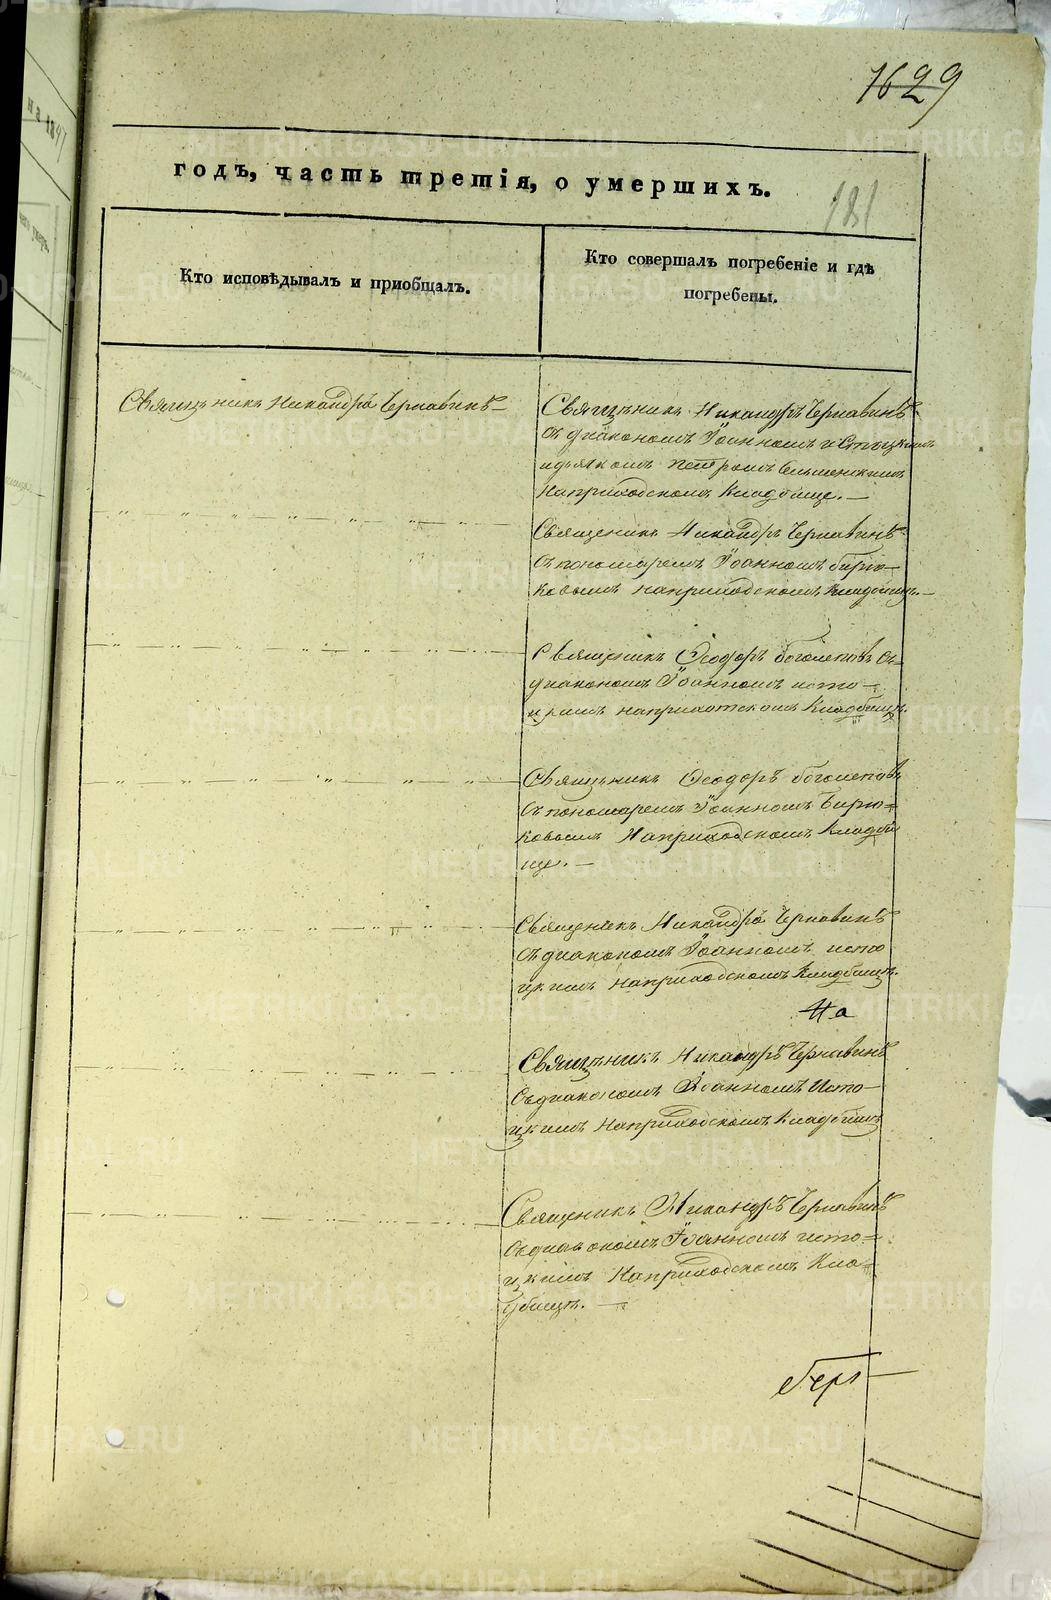 1629
годъ, часть третія, о умершихъ.
181
Кто исповѣдывалъ и приобщалъ.
Кто совершалъ погребеніе и гдѣ
погребены.
Священникъ Никандръ Чернавинъ
Священникъ Никандръ Чернавинъ
съ діакономъ Іоанномъ Истоцкимъ
идьякомъ Петромъ
наприходскомъ Кладбище.
Священикъ Никандръ Чернавинъ
съ пономаремъ Іоанномъ Бирю-
ковымъ наприходскомъ Кладбищѣ.
Священикъ Ѳеодоръ Боголеповъ съ
диакономъ Іоанномъ исто-
цкимъ наприхотскомъ Кладбищѣ.
Священикъ Ѳеодоръ боголеповъ
съ пономаремъ Іоанномъ Бирю=
ковымъ Наприходскомъ Кладби
ще.
Священикъ Никандръ Чернавинъ
съ диакономъ Іоанномъ исто
цкимъ наприходскомъ Кладбищѣ.
На
Священикъ Никандръ Чернавинъ
Съдиакономъ Іоанномъ Исто-
цкимъ Наприходскомъ Кладбищѣ
Священикъ Никандръ Чернавинъ
Съдиакономъ Іоанномъ исто=
цкимъ Наприходскомъ Кла=
дбищѣ.
METRIKI.GASO-URAL.RU